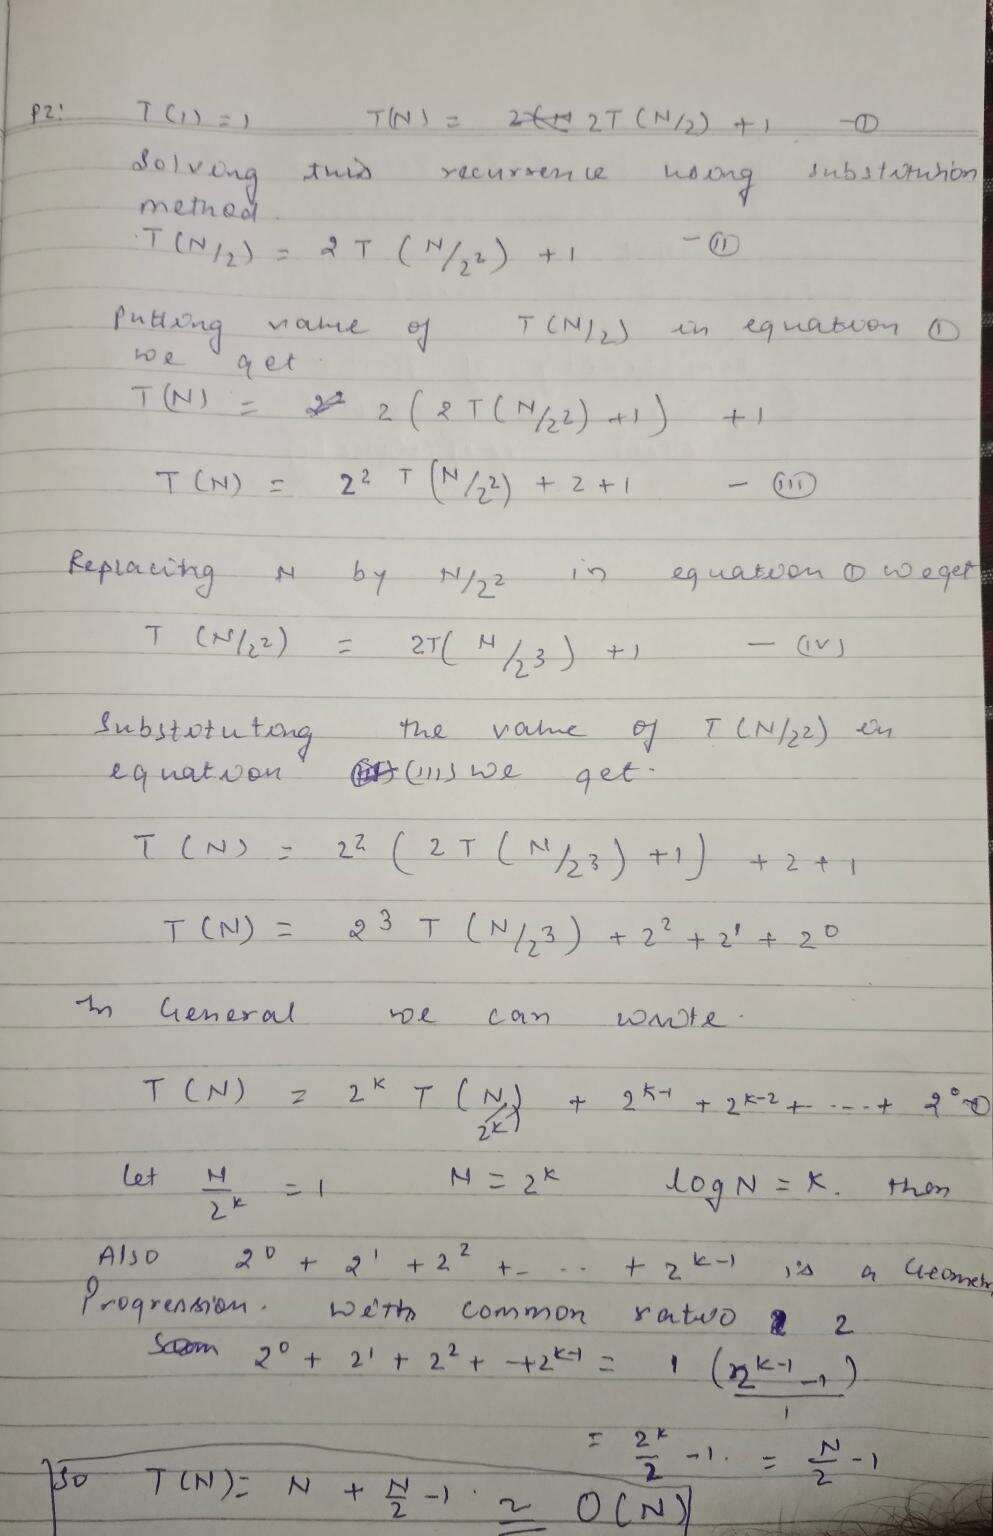 P2: T(1) = 1 T(N) = 2T(N/2) + 1 - (I)
Solving this recurrence using substitution
method.
T(N/2) = 2T(N/2²) + 1 - (II)
Putting value of T(N/2) in equation (I)
we get.
T(N) = 2(2T(N/2²) + 1) + 1
T(N) = 2² T(N/2²) + 2 + 1 - (III)
Replacing N by N/2² in equation (I) we get
T(N/2²) = 2T(N/2³) + 1 - (IV)
Substituting the value of T(N/2²) in
equation (III) we get.
T(N) = 2² (2T(N/2³) + 1) + 2 + 1
T(N) = 2³ T(N/2³) + 2² + 2¹ + 2⁰
In General we can write.
T(N) = 2ᴷ T(N/2ᴷ) + 2ᴷ⁻¹ + 2ᴷ⁻² + ... + 2⁰
Let N/2ᴷ = 1 N = 2ᴷ log N = K. then
Also 2⁰ + 2¹ + 2² + ... + 2ᴷ⁻¹ is a Geometr
Progression. with common ratio 2
Sum 2⁰ + 2¹ + 2² + - + 2ᴷ⁻¹ = 1 (2ᴷ⁻¹ - 1)/1
= 2ᴷ/2 - 1. = N/2 - 1
So T(N) = N + N/2 - 1. ≅ O(N)